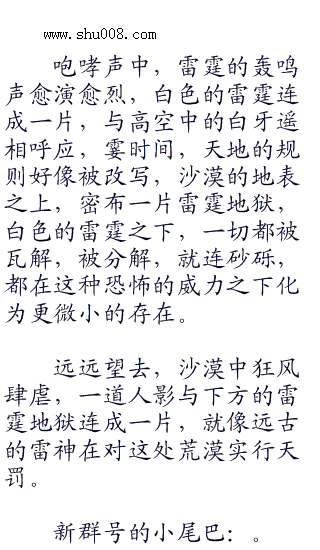 www.shu008.com
咆哮声中，雷霆的轰鸣
声愈演愈烈，白色的雷霆连
成一片，与高空中的白牙遥
相呼应，霎时间，天地的规
则好像被改写，沙漠的地表
之上，密布一片雷霆地狱，
白色的雷霆之下，一切都被
瓦解，被分解，就连砂砾，
都在这种恐怖的威力之下化
为更微小的存在。
远远望去，沙漠中狂风
肆虐，一道人影与下方的雷
霆地狱连成一片，就像远古
的雷神在对这处荒漠实行天
罚。
新群号的小尾巴：。